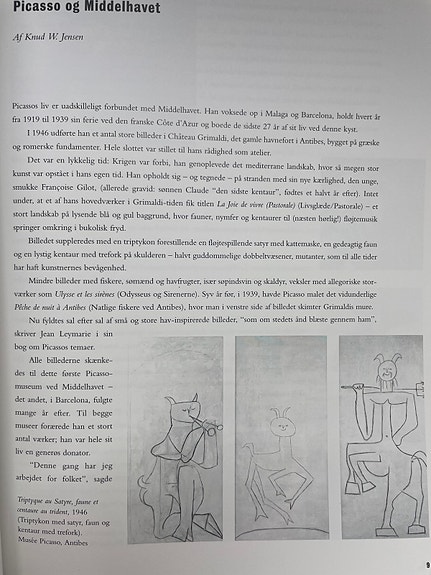 Picasso og Middelhavet
Af Knud W. Jensen
Picassos liv er uadskilleligt forbundet med Middelhavet. Han voksede op i Malaga og Barcelona, holdt hvert år
fra 1919 til 1939 sin ferie ved den franske Côte d'Azur og boede de sidste 27 år af sit liv ved denne kyst.
I 1946 udførte han et antal store billeder i Château Grimaldi, det gamle havnefort i Antibes, bygget på græske
og romerske fundamenter. Hele slottet var stillet til hans rådighed som atelier.
Det var en lykkelig tid: Krigen var forbi, han genoplevede det mediterrane landskab, hvor så megen stor
kunst var opstået i hans egen tid. Han opholdt sig – og tegnede – på stranden med sin nye kærlighed, den unge,
smukke Françoise Gilot, (allerede gravid: sønnen Claude "den sidste kentaur", fødtes et halvt år efter). Intet
under, at et af hans hovedværker i Grimaldi-tiden fik titlen La Joie de vivre (Pastorale) (Livsglæde/Pastorale) – et
stort landskab på lysende blå og gul baggrund, hvor fauner, nymfer og kentaurer til (næsten hørlig!) fløjtemusik
springer omkring i bukolisk fryd.
Billedet suppleredes med en triptykon forestillende en fløjtespillende satyr med kattemaske, en gedeagtig faun
og en lystig kentaur med trefork på skulderen – halvt guddommelige dobbeltvæsener, mutanter, som til alle tider
har haft kunstnernes bevågenhed.
Mindre billeder med fiskere, sømænd og havfrugter, især søpindsvin og skaldyr, veksler med allegoriske stor-
værker som Ulysse et les sirènes (Odysseus og Sirenerne). Syv år før, i 1939, havde Picasso malet det vidunderlige
Pêche de nuit à Antibes (Natlige fiskere ved Antibes), hvor man i venstre side af billedet skimter Grimaldis mure.
Nu fyldtes sal efter sal af små og store hav-inspirerede billeder, "som om stedets ånd blæste gennem ham",
skriver Jean Leymarie i sin
bog om Picassos temaer.
Alle billederne skænke-
des til dette første Picasso-
museum ved Middelhavet –
det andet, i Barcelona, fulgte
mange år efter. Til begge
museer forærede han et stort
antal værker; han var hele sit
liv en generøs donator.
"Denne gang har jeg
arbejdet for folket", sagde
Triptyque au Satyre, faune et
centaure au trident, 1946
(Triptykon med satyr, faun og
kentaur med trefork).
Musée Picasso, Antibes
9